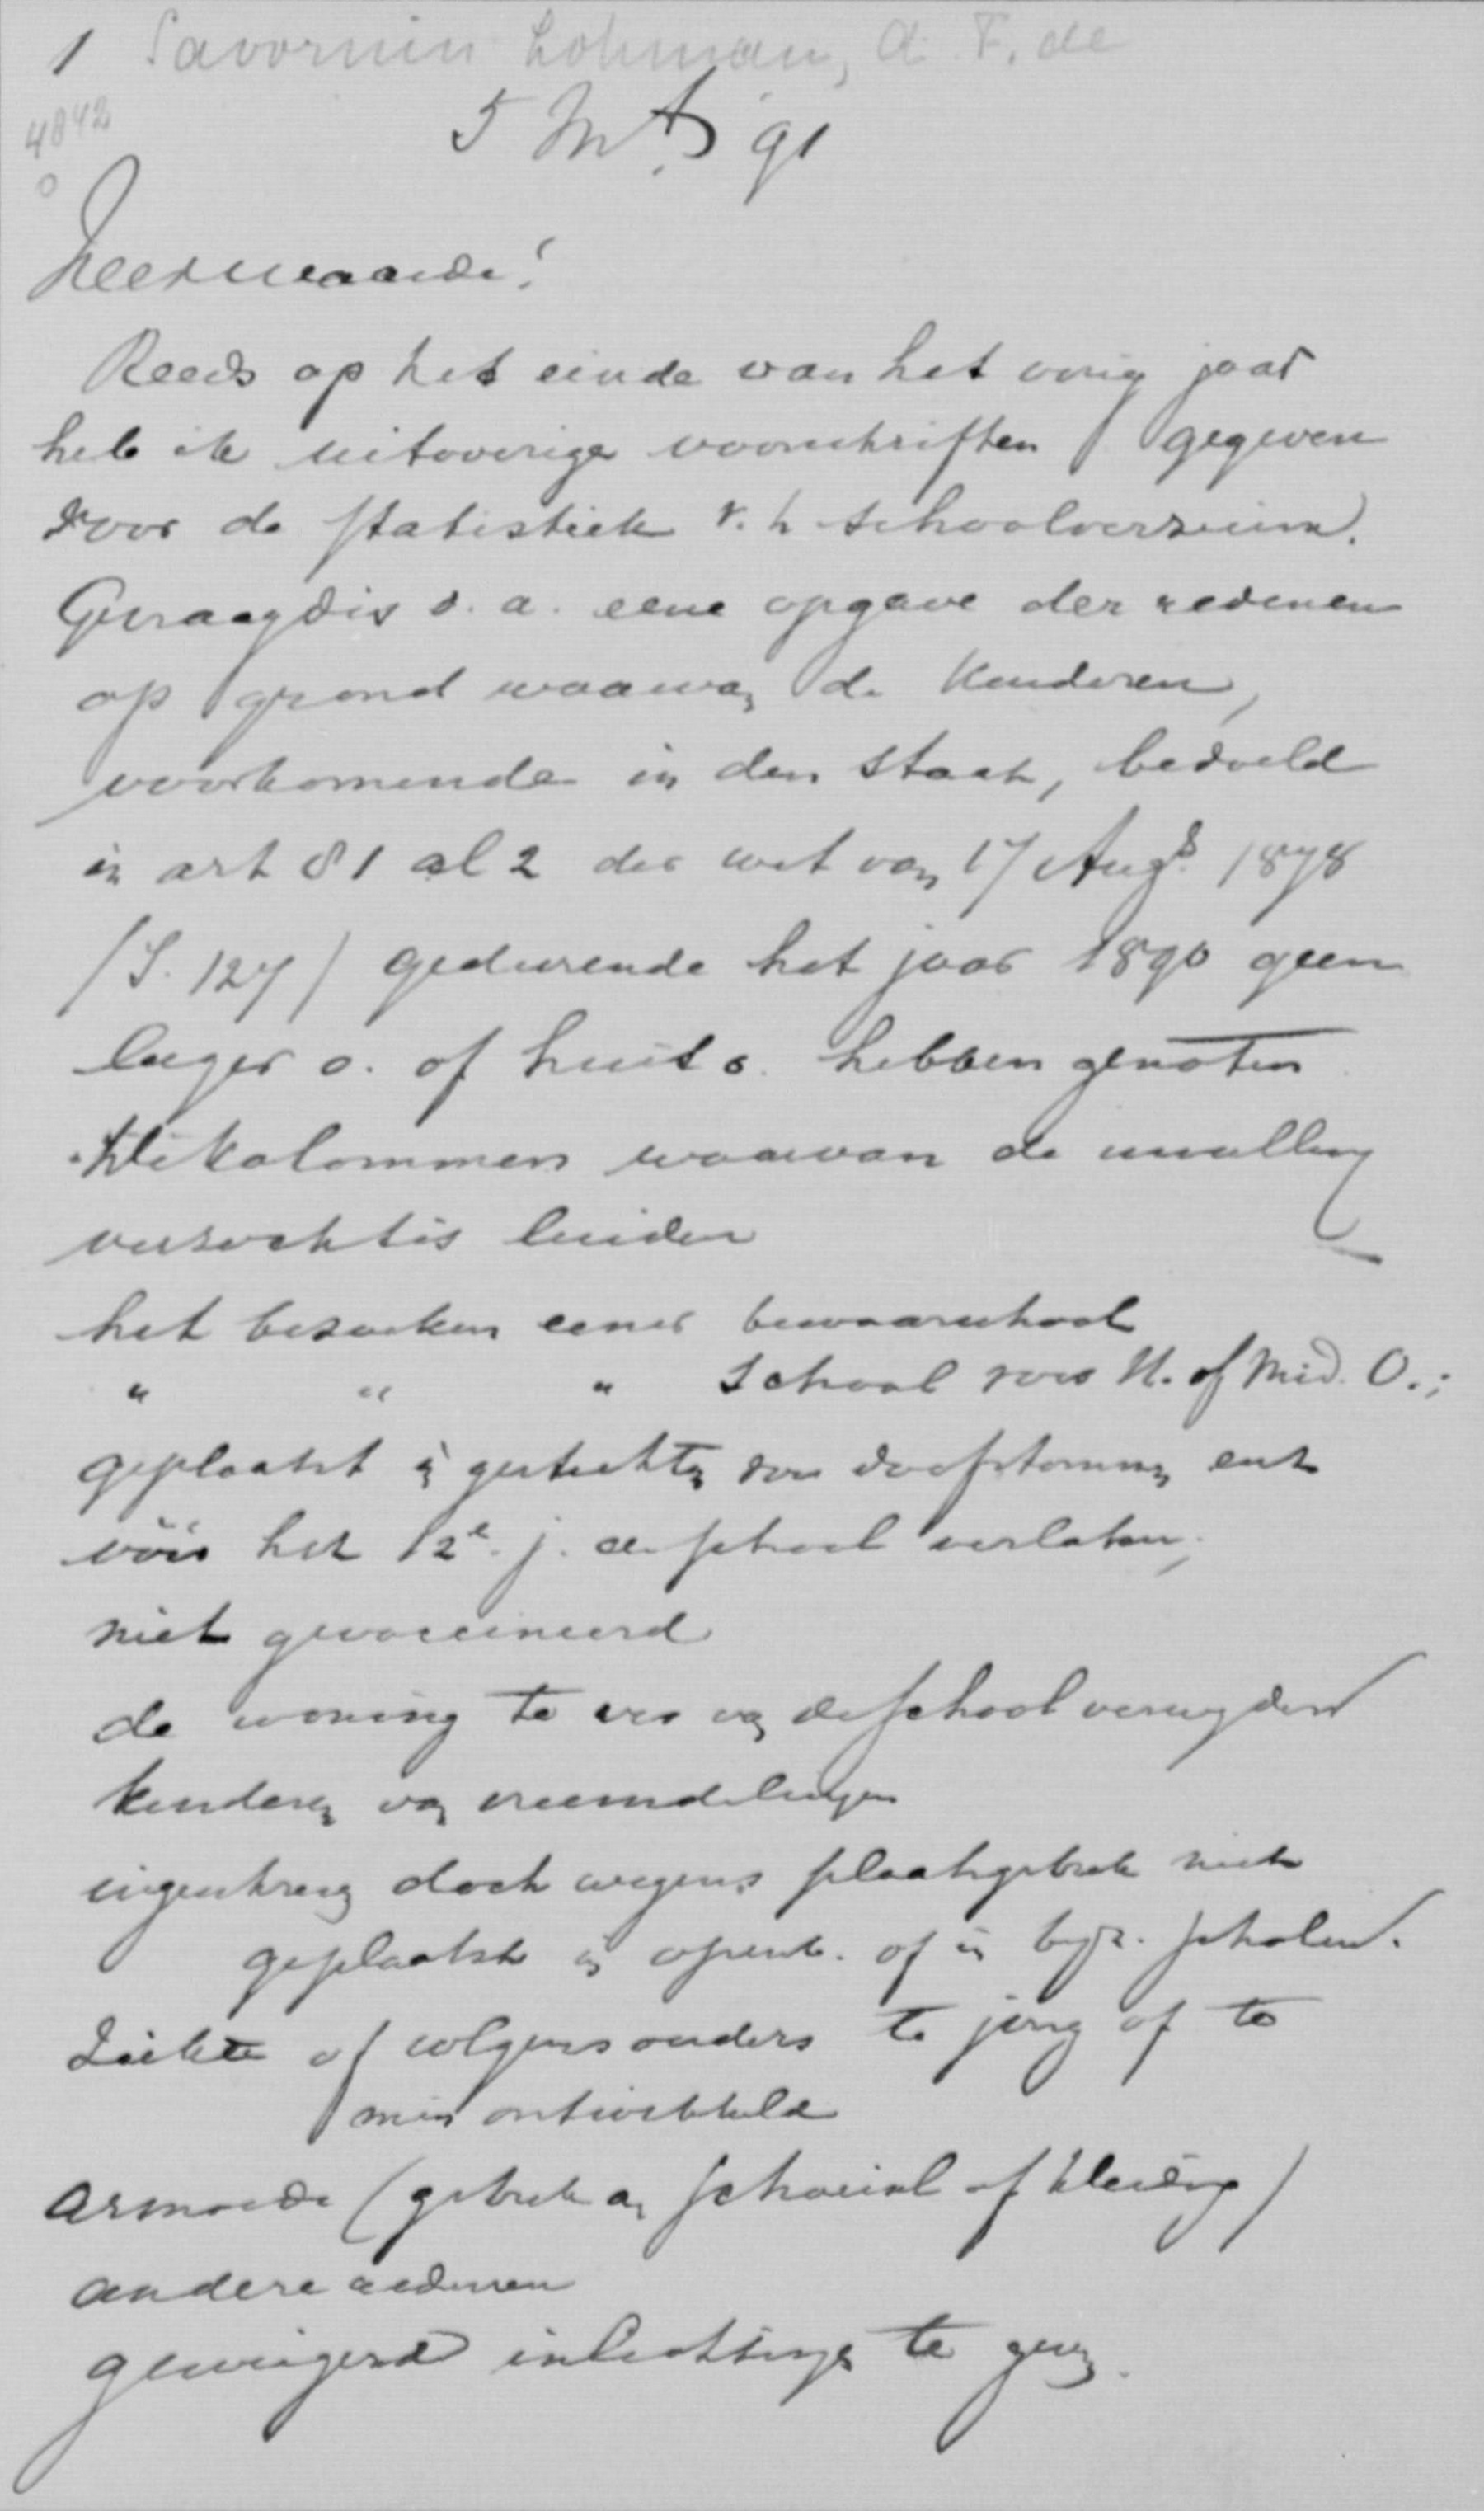 1 Savornin Lohman, A. F. de
4842
0
5 Mrt 91
Zeerwaarde!
Reeds op het einde van het vorig jaar
heb ik uitvoerige voorschriften gegeven
voor de statistiek v. h schoolverzuim.
Gevraagd is o. a. eene opgave der redenen
op grond waarvan de kinderen,
voorkomende in den staat, bedoeld
in art 81 al 2 der wet van 17 Augs 1878
(S. 127) gedurende het jaar 1890 geen
lager o. of huis o. hebben genoten
De kolommen waarvan de invulling
verzocht is luiden
het bezoeken eener bewaarschool
" " " School voor H. of Mid. O.;
geplaatst in gestichten voor doofstommen enz
vóór het 12e j. de school verlaten;
niet gevaccineerd
de woning te ver van de school verwijderd
kinderen van vreemdelingen
ingeschreven doch wegens plaatsgebrek niet
geplaatst in openb. of in byz. scholen.
Ziekte of volgens ouders te jong of te
min ontwikkeld
armoede (gebrek aan schoeisel of kleeding)
andere redenen
geweigerd inlichtingen te geven.